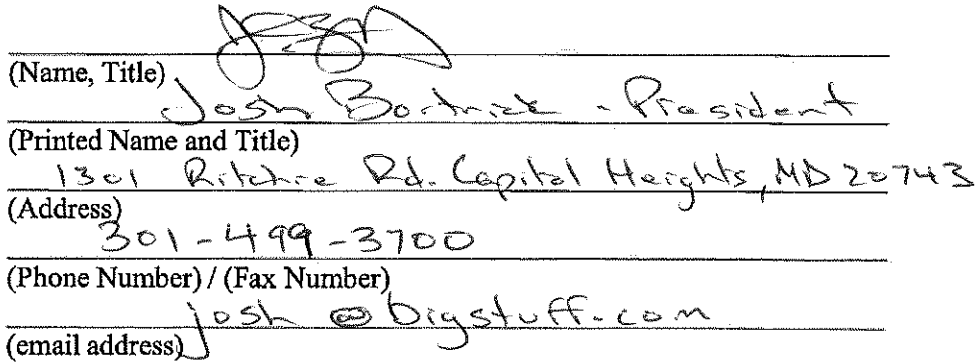 (Name, Title)
Josh Bortnick - President
(Printed Name and Title)
1301 Ritchie Rd. Capital Heights, MD 20743
(Address)
301-499-3700
(Phone Number) / (Fax Number)
josh@bigstuff.com
(email address)